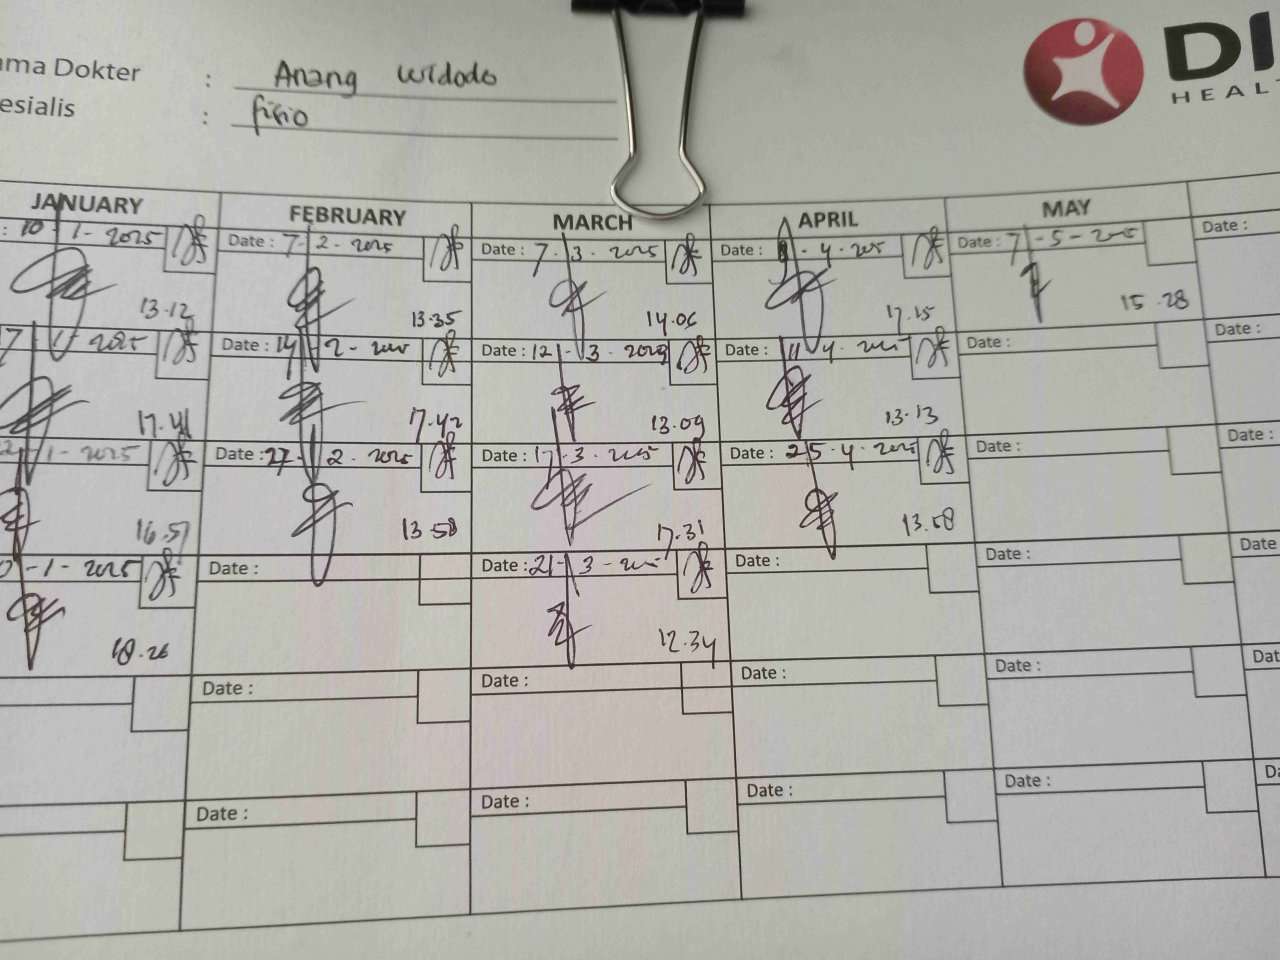 ama Dokter : Anang Widodo
esialis : fisio
DI
HEALT
JANUARY FEBRUARY MARCH APRIL MAY
: 10-1-2025 Date : 7-2-2025 Date : 7-3-2025 Date : -4-2025 Date : 7-5-2025 Date :
13.12 13.35 14.06 17.15 15.28
7-1-2025 Date : 14-2-2025 Date : 12-3-2025 Date : 11-4-2025 Date : Date :
17.41 17.42 13.09 13.13
2-1-2025 Date : 27-2-2025 Date : 17-3-2025 Date : 25-4-2025 Date : Date :
16.57 13.58 17.31 13.58
0-1-2025 Date : Date : 21-3-2025 Date : Date : Date
18.26 12.34
Date : Date : Date : Date : Dat
Date : Date : Date : Date : Da